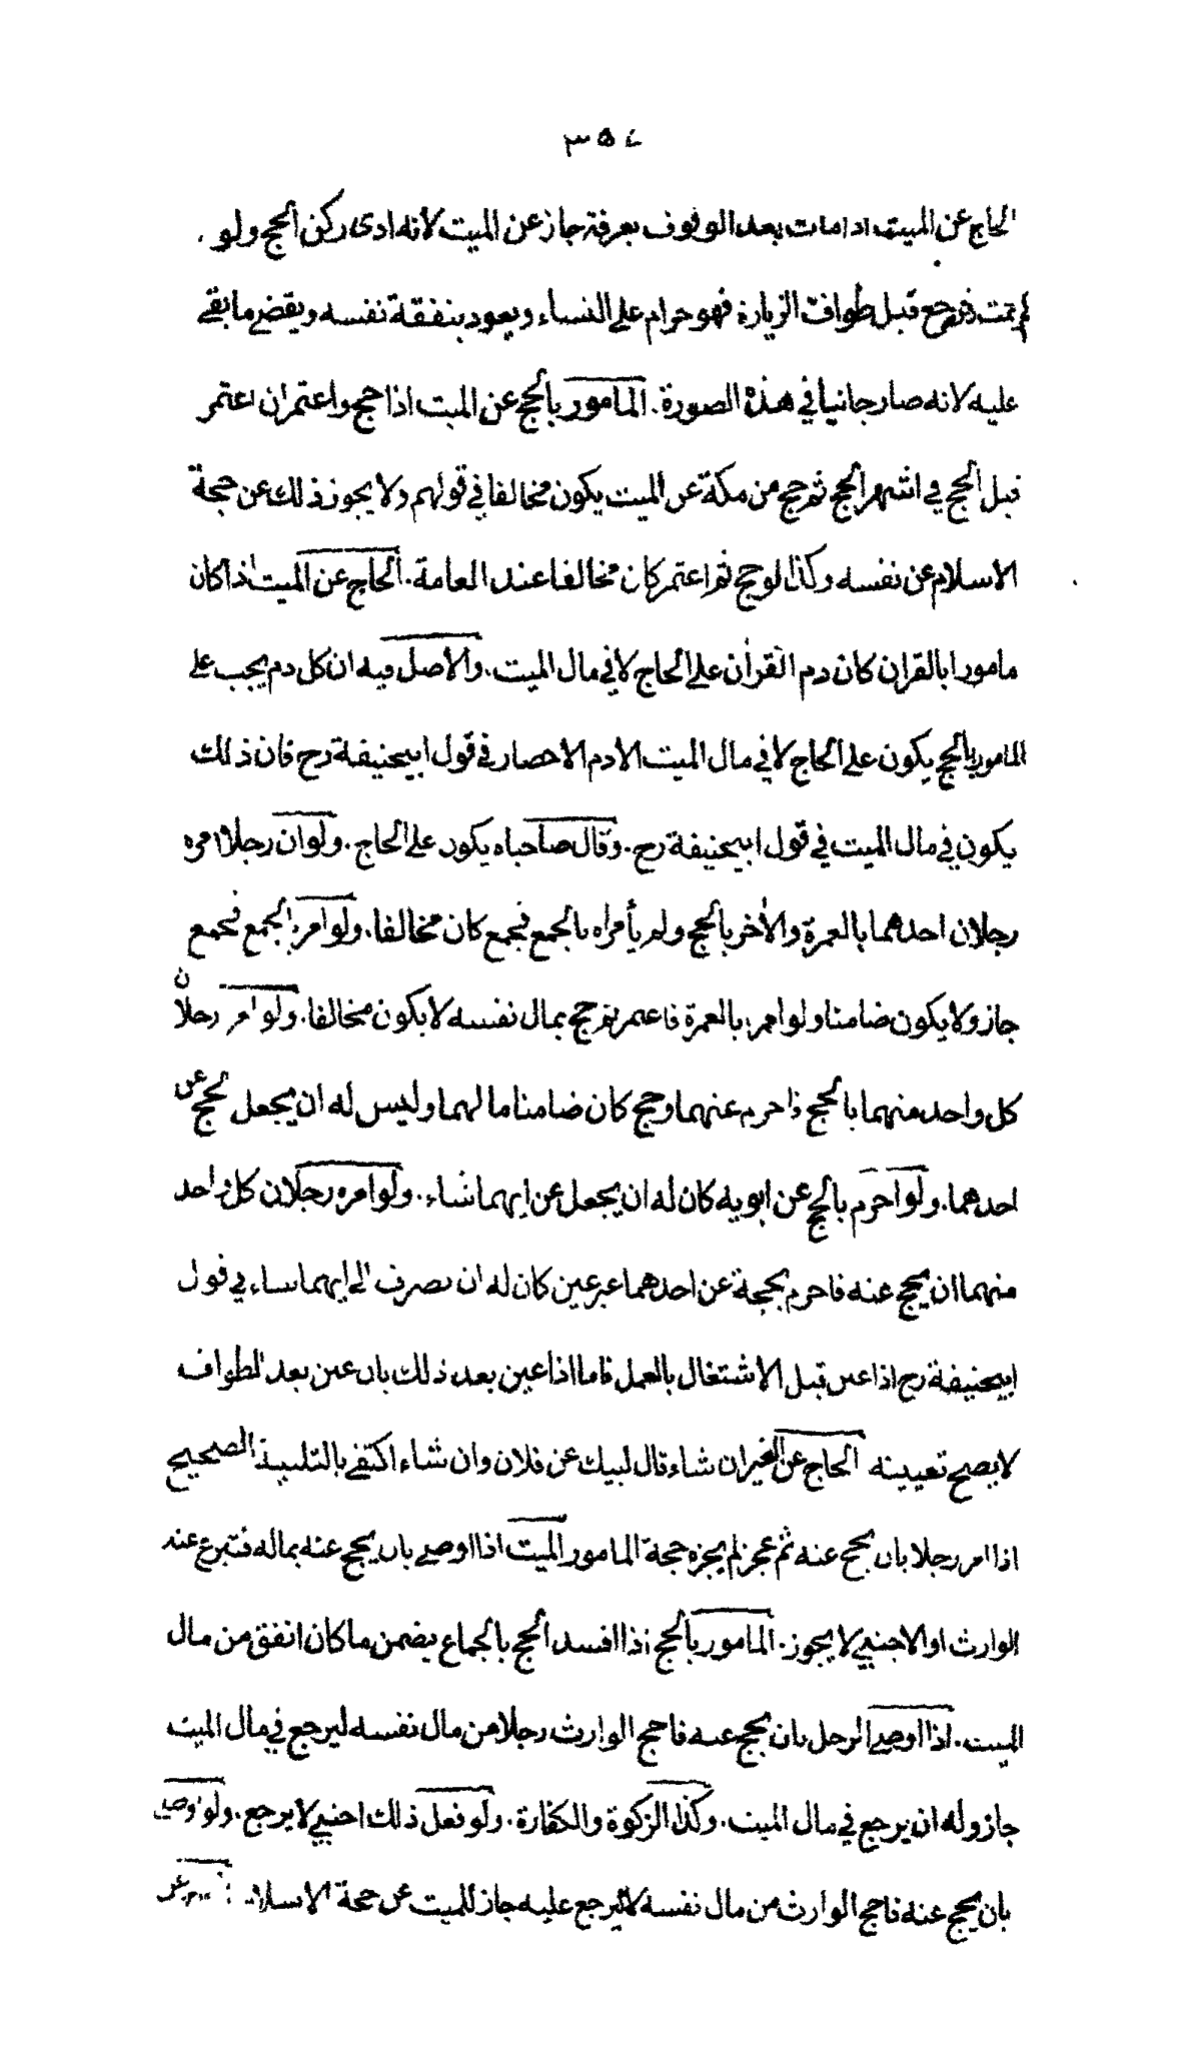 ٣٥٤
الحاج عن الميت اذا مات بعد الوقوف بعرفة جاز عن الميت لانه ادى ركن الحج ولو
لم يمت فرجع قبل طواف الزيارة فهو حرام على النساء ويعود بنفقة نفسه ويقضى ما بقى
عليه لانه صار جانيا في هذه الصورة. المامور بالحج عن الميت اذا حج واعتمر ان اعتمر
قبل الحج في اشهر الحج ثم حج من مكة عن الميت يكون مخالفا في قولهم ولا يجوز ذلك عن حجة
الاسلام عن نفسه وكذا لو حج ثم اعتمر كان مخالفا عند العامة. الحاج عن الميت اذا كان
مامورا بالقران كان دم القران على الحاج لا في مال الميت. والاصل فيه ان كل دم يجب على
المامور بالحج يكون على الحاج لا في مال الميت الا دم الاحصار في قول ابيحنيفة رح فان ذلك
يكون في مال الميت في قول ابيحنيفة رح. وقال صاحباه يكون على الحاج. ولو ان رجلا امره
رجلان احدهما بالعمرة والاخر بالحج ولم يأمراه بالجمع فجمع كان مخالفا. ولو امره بالجمع فجمع
جاز ولا يكون ضامنا ولو امره بالعمرة فاعتمر ثم حج بمال نفسه لا يكون مخالفا. ولو امر رجلان
كل واحد منهما بالحج فاحرم عنهما وحج كان ضامنا مالهما وليس له ان يجعل الحج عن
احدهما. ولو احرم بالحج عن ابويه كان له ان يجعل عن ايهما شاء. ولو امره رجلان كل واحد
منهما ان يحج عنه فاحرم بحجة عن احدهما غير عين كان له ان يصرف الى ايهما شاء في قول
ابيحنيفة رح اذا عين قبل الاشتغال بالعمل فاما اذا عين بعد ذلك بان عين بعد الطواف
لا يصح تعيينه الحاج عن الغير ان شاء قال لبيك عن فلان وان شاء اكتفى بالتلبية الصحيح
اذا امر رجلا بان يحج عنه ثم عجز لم يجزه حجة المامور الميت اذا اوصى بان يحج عنه بماله فتبرع عنه
الوارث او الاجنبي لا يجوز. المامور بالحج اذا افسد الحج بالجماع يضمن ما كان انفق من مال
الميت. اذا اوصى الرجل بان يحج عنه فاحج الوارث رجلا من مال نفسه ليرجع في مال الميت
جاز وله ان يرجع في مال الميت. وكذا الزكوة والكفارة. ولو فعل ذلك اجنبي لا يرجع. ولو اوصى
بان يحج عنه فاحج الوارث من مال نفسه لا ليرجع عليه جاز للميت عن حجة الاسلام